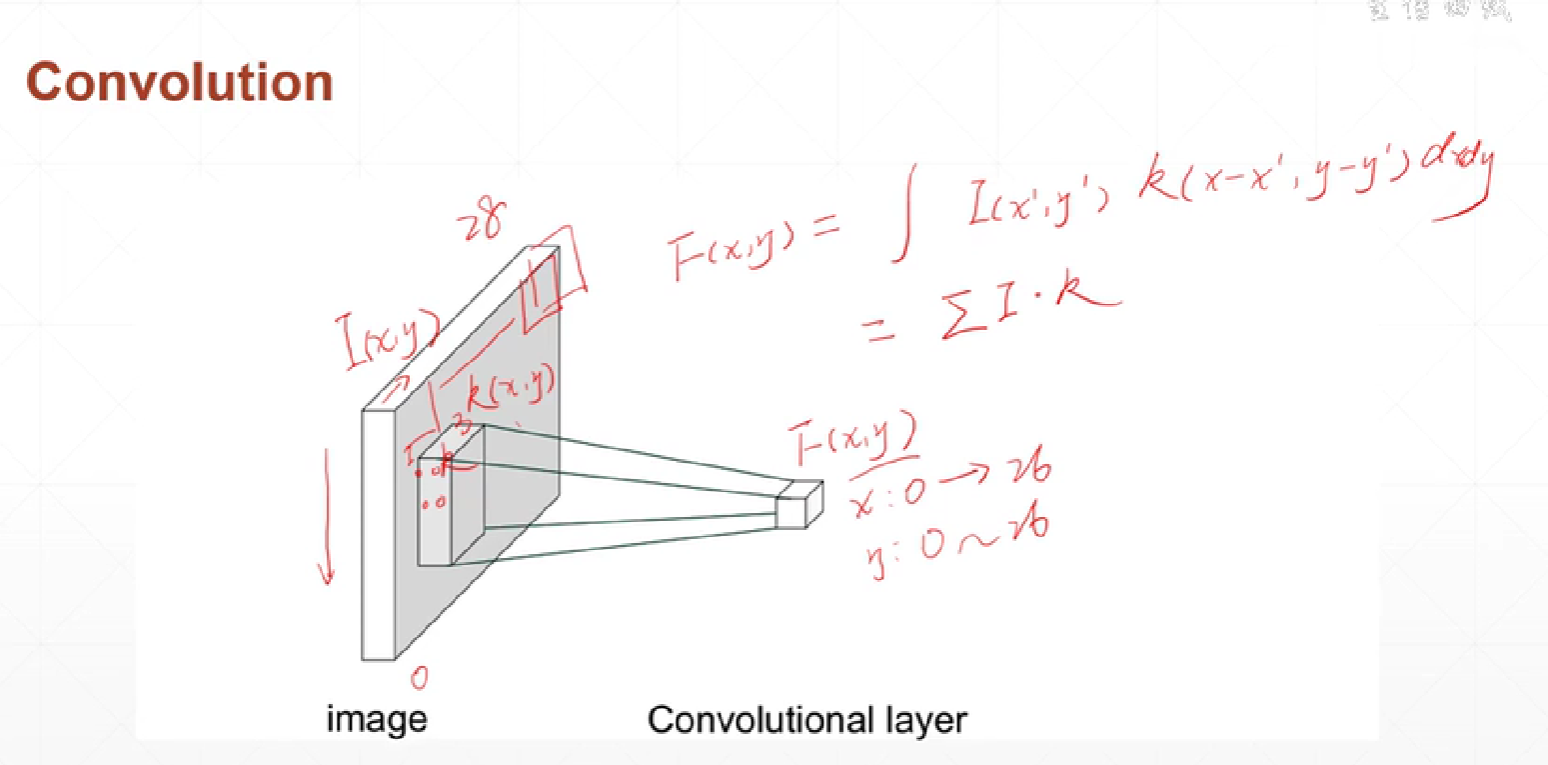 Convolution
28
F(x,y) = ∫ I(x',y') k(x-x', y-y') dxdy
= Σ I · k
I(x,y)
k(x,y)
3
I
k
F(x,y)
x: 0 → 26
y: 0 ~ 26
0
image
Convolutional layer